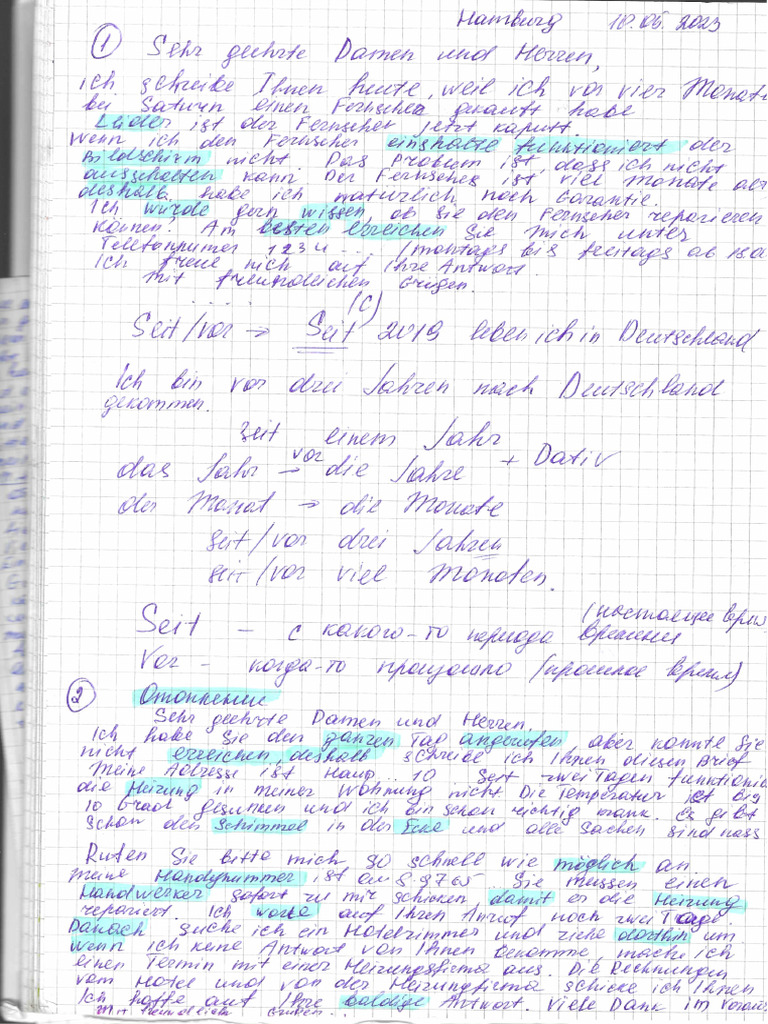 Hamburg 18.05.2023
① Sehr geehrte Damen und Herren,
ich schreibe Ihnen heute, weil ich vor vier Monate
bei Saturn einen Fernseher gekauft habe
Leider ist der Fernseher jetzt kaputt.
Wenn ich den Fernseher einshalte funktioniert der
Bildschirm nicht Das Problem ist, dass ich nicht
ausschalten kann Der Fernseher ist viel Monate alt
deshalb habe ich natürlich noch Garantie.
Ich würde gern wissen, ob Sie den Fernseher reparieren
können. Am besten erreichen Sie mich unter
Telefonnumer 1234 ... /montags bis freitags ab
Ich freue mich auf Ihre Antwort.
Mit freundlichen Grüßen.
(C)
Seit/vor → Seit 2019 leben ich in Deutschland
Ich bin vor drei Jahren nach Deutschland
gekommen.
seit einem Jahr
das Jahr → vor die Jahre + Dativ
der Monat → die Monate
seit/vor drei Jahren
seit/vor viel Monaten.
(настоящее врем
Seit – с какого-то периода времени
Vor – когда-то произошло (прошлое время)
② Отопление
Sehr geehrte Damen und Herren,
Ich habe Sie den ganzen Tag angerufen, aber konnte Sie
nicht erreichen, deshalb schreibe ich Ihnen diesen Brief
Meine Adresse ist Haup... 10 Seit zwei Tagen funktionie
die Heizung in meiner Wohnung nicht Die Temperatur ist bis
10 Grad gesunken und ich bin schon richtig krank. Es gibt
schon den Schimmel in der Ecke und alle Sachen sind nass
Rufen Sie bitte mich so schnell wie möglich an.
meine Handynummer ist 9765... Sie müssen einen
Handwerker sofort zu mir schicken damit er die Heizung
repariert. Ich warte auf Ihren Anruf noch zwei Tage
Danach suche ich ein Hotelzimmer und ziehe dorthin um
Wenn ich keine Antwort von Ihnen bekomme, mache ich
einen Termin mit einer Heizungsfirma aus. Die Rechnungen
vom Hotel und von der Heizungsfirma schicke ich Ihnen
Ich hoffe auf Ihre baldige Antwort. Viele Dank im Voraus
Mit freundlichen Grüßen...